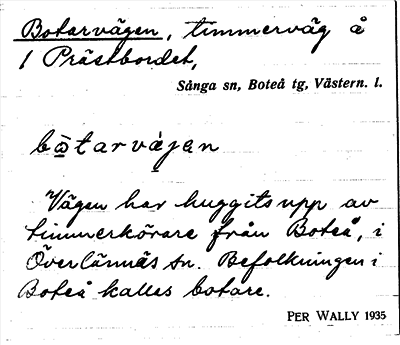 Botarvägen, timmerväg å
1 Prästbordet,
Sånga sn, Boteå tg, Västern. l.
bo̱tarvä̀jen
Vägen har huggits upp av
timmerkörare från Boteå, i
Överlännäs sn. Befolkningen i
Boteå kallas botare.
PER WALLY 1935